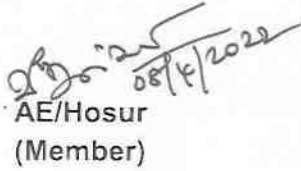 08/4/2022
AE/Hosur
(Member)